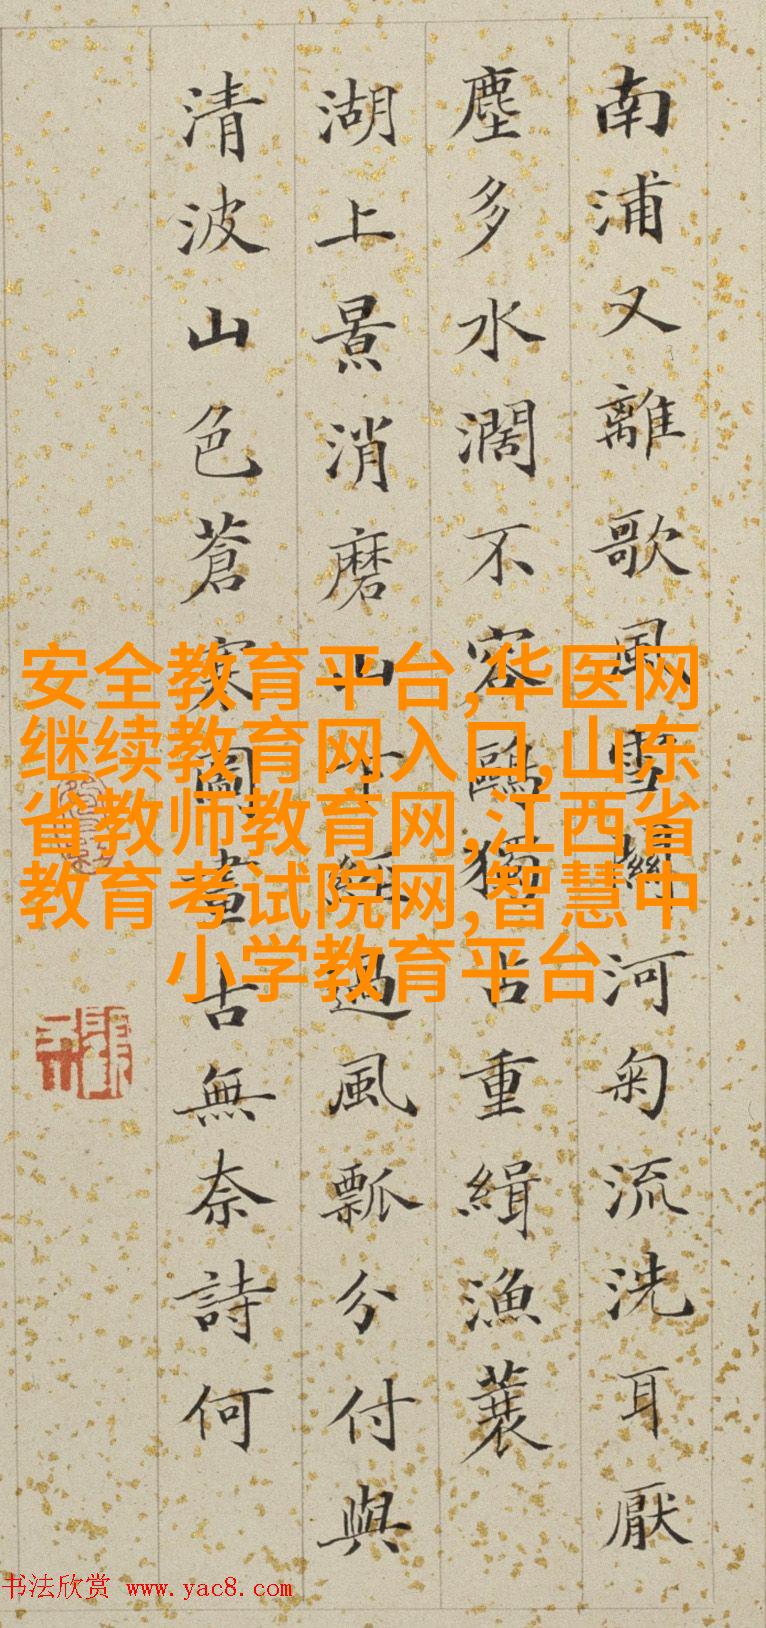 南浦又離歌風雪關河匊流洗耳厭
塵多水濶不容鷗獨占重緝漁蓑
湖上景消磨山下經過風瓢分付與
清波山色蒼寒圖畫古無奈詩何
安全教育平台,华医网
继续教育网入口,山东
省教师教育网,江西省
教育考试院网,智慧中
小学教育平台
书法欣赏 www.yac8.com